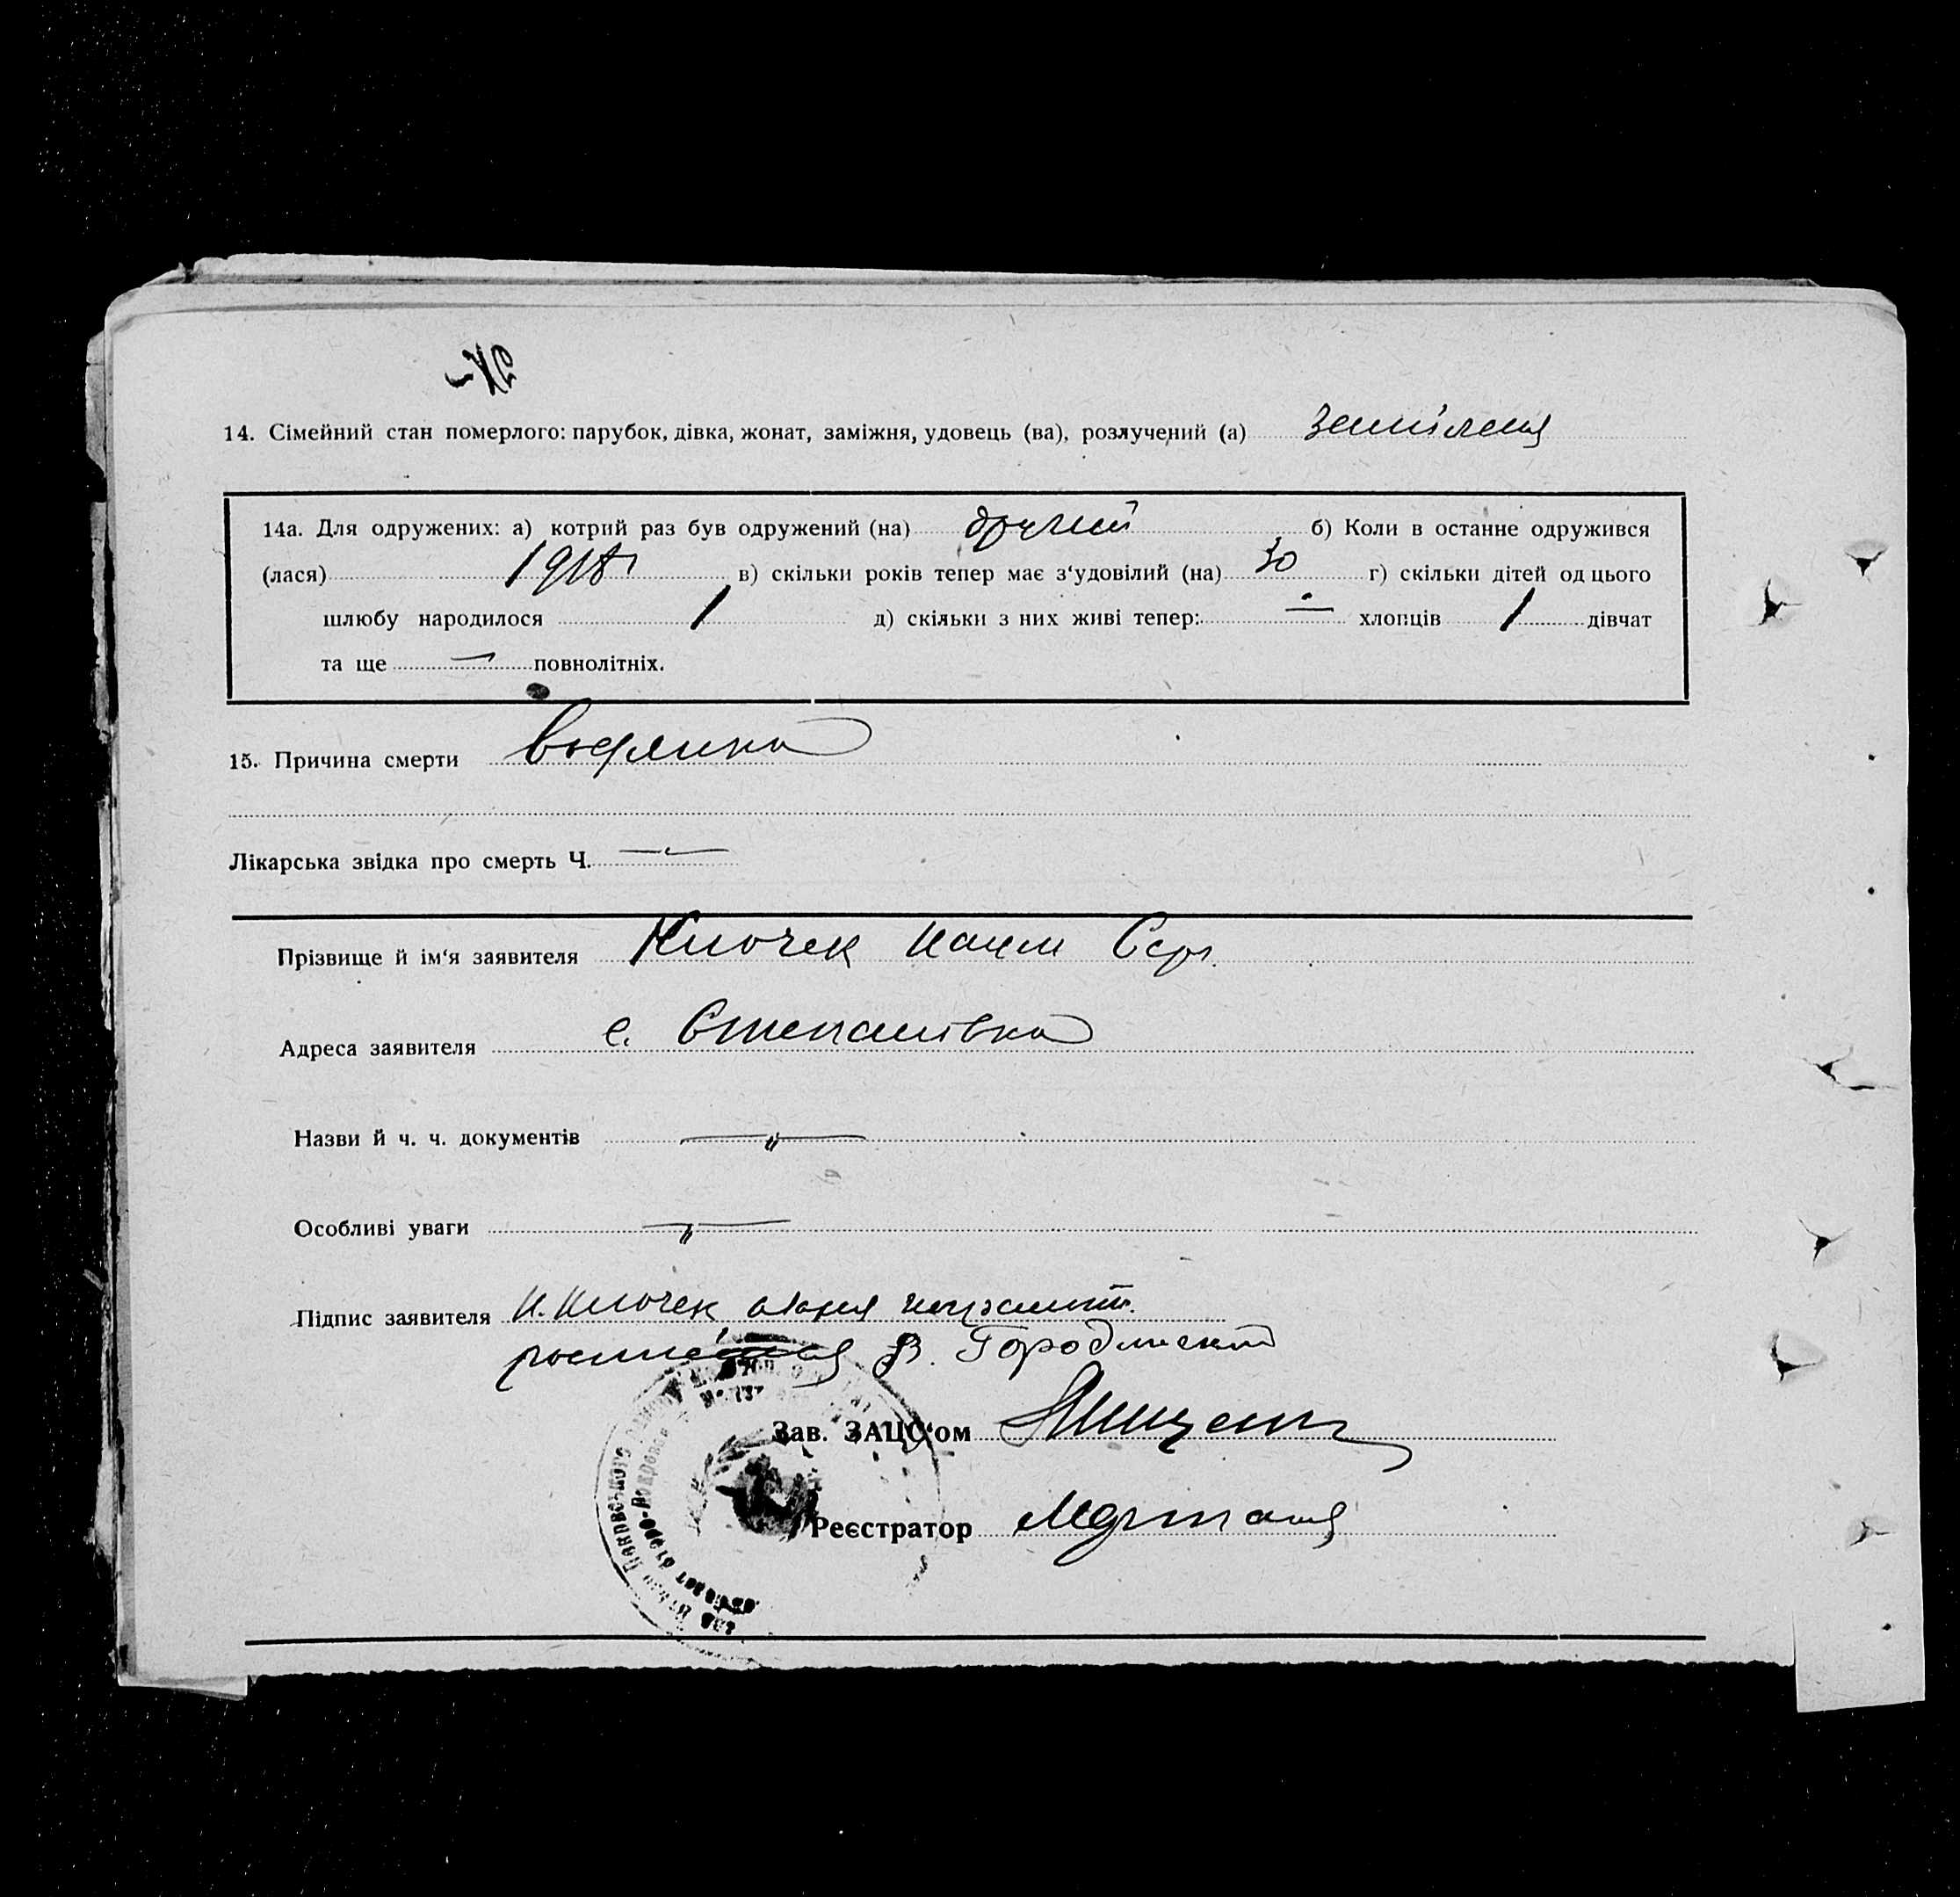 14. Сімейний стан померлого: парубок, дівка, жонат, заміжня, удовець (ва), розлучений (а)
14а. Для одружених: а) котрий раз був одружений (на) другий б) Коли в останне одружився
(лася) 1918 в) скільки років тепер має з‘удовілий (на) 30 г) скільки дітей од цього
шлюбу народилося 1 д) скільки з них живі тепер: — хлопців 1 дівчат
та ще — повнолітніх.
15. Причина смерти водянка
Лікарська звідка про смерть Ч. —
Прізвище й ім‘я заявителя Клочек Наум Сер.
Адреса заявителя с. Степанівка
Назви й ч. ч. документів — " —
Особливі уваги — " —
Підпис заявителя Н. Клочек
В. Городинский
Зав. ЗАЦС‘ом
Реєстратор